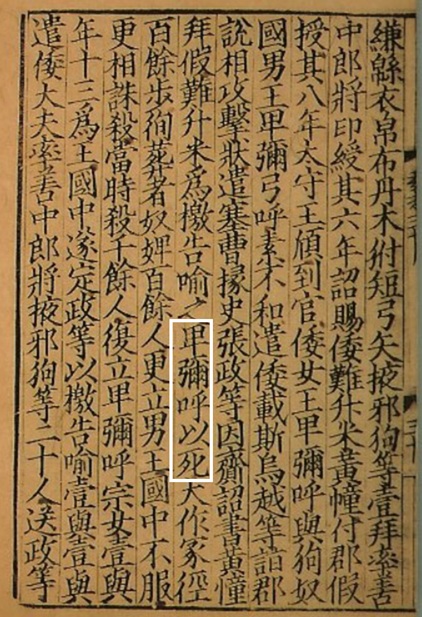 縑緜衣帛布丹木𤝔短弓矢掖邪狗等壹拜率善
中郎將印綬其六年詔賜倭難升米黃幢付郡假
授其八年太守王頎到官倭女王卑彌呼與狗奴
國男王卑彌弓呼素不和遣倭載斯烏越等詣郡
說相攻擊狀遣塞曹掾史張政等因齎詔書黃幢
拜假難升米爲檄告喻之卑彌呼以死大作冢徑
百餘步徇葬者奴婢百餘人更立男王國中不服
更相誅殺當時殺千餘人復立卑彌呼宗女壹與
年十三爲王國中遂定政等以檄告喻壹與壹與
遣倭大夫率善中郎將掖邪狗等二十人送政等